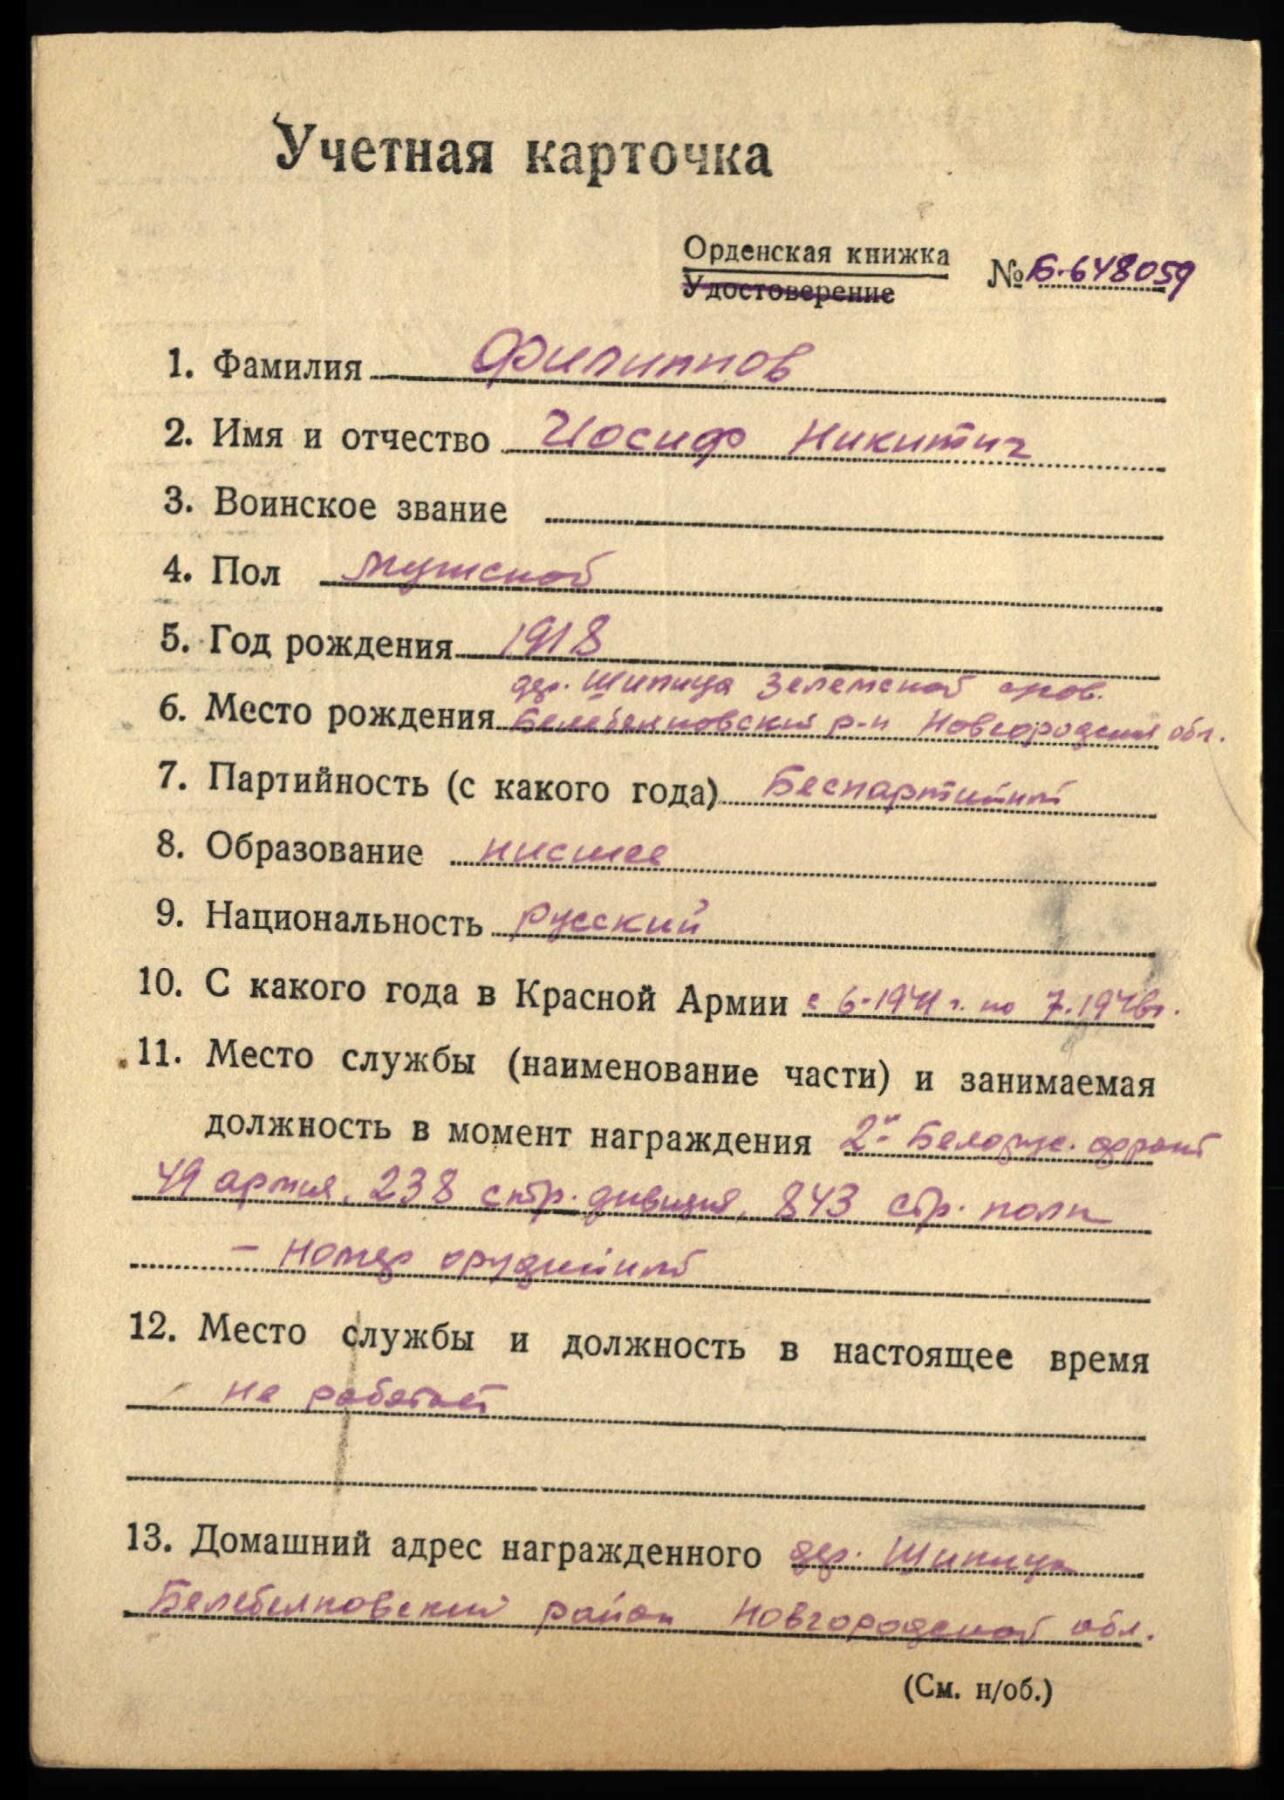 Учетная карточка
Орденская книжка
Удостоверение
№ Б-648059
1. Фамилия Филиппов
2. Имя и отчество Иосиф Никитич
3. Воинское звание
4. Пол мужской
5. Год рождения 1918
дер. Шипица
6. Место рождения Белебелковский р-н Новгородская обл.
7. Партийность (с какого года) Беспартийный
8. Образование низшее
9. Национальность русский
10. С какого года в Красной Армии с 6-1941 г. по 7.1946г.
11. Место службы (наименование части) и занимаемая
должность в момент награждения 2й Белорус. фронт
49 армия, 238 стр. дивизия, 843 стр. полк
- номер орудийный
12. Место службы и должность в настоящее время
не работает
13. Домашний адрес награжденного дер. Шипица
Белебелковский район Новгородской обл.
(См. н/об.)